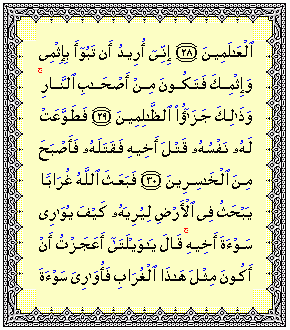 ٱلْعَٰلَمِينَ ﴿٢٨﴾ إِنِّىٓ أُرِيدُ أَن تَبُوٓأَ بِإِثْمِى
وَإِثْمِكَ فَتَكُونَ مِنْ أَصْحَٰبِ ٱلنَّارِ ۚ
وَذَٰلِكَ جَزَٰٓؤُا۟ ٱلظَّٰلِمِينَ ﴿٢٩﴾ فَطَوَّعَتْ
لَهُۥ نَفْسُهُۥ قَتْلَ أَخِيهِ فَقَتَلَهُۥ فَأَصْبَحَ
مِنَ ٱلْخَٰسِرِينَ ﴿٣٠﴾ فَبَعَثَ ٱللَّهُ غُرَابًا
يَبْحَثُ فِى ٱلْأَرْضِ لِيُرِيَهُۥ كَيْفَ يُوَٰرِى
سَوْءَةَ أَخِيهِ ۚ قَالَ يَٰوَيْلَتَىٰٓ أَعَجَزْتُ أَنْ
أَكُونَ مِثْلَ هَٰذَا ٱلْغُرَابِ فَأُوَٰرِىَ سَوْءَةَ